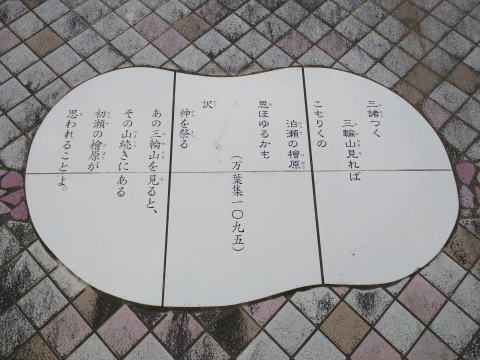 三諸つく
三輪山見れば
こもりくの
泊瀬の檜原
思ほゆるかも
(万葉集一〇九五)
訳
神を祭る
あの三輪山を見ると、
その山続きにある
初瀬の檜原が
思われることよ。